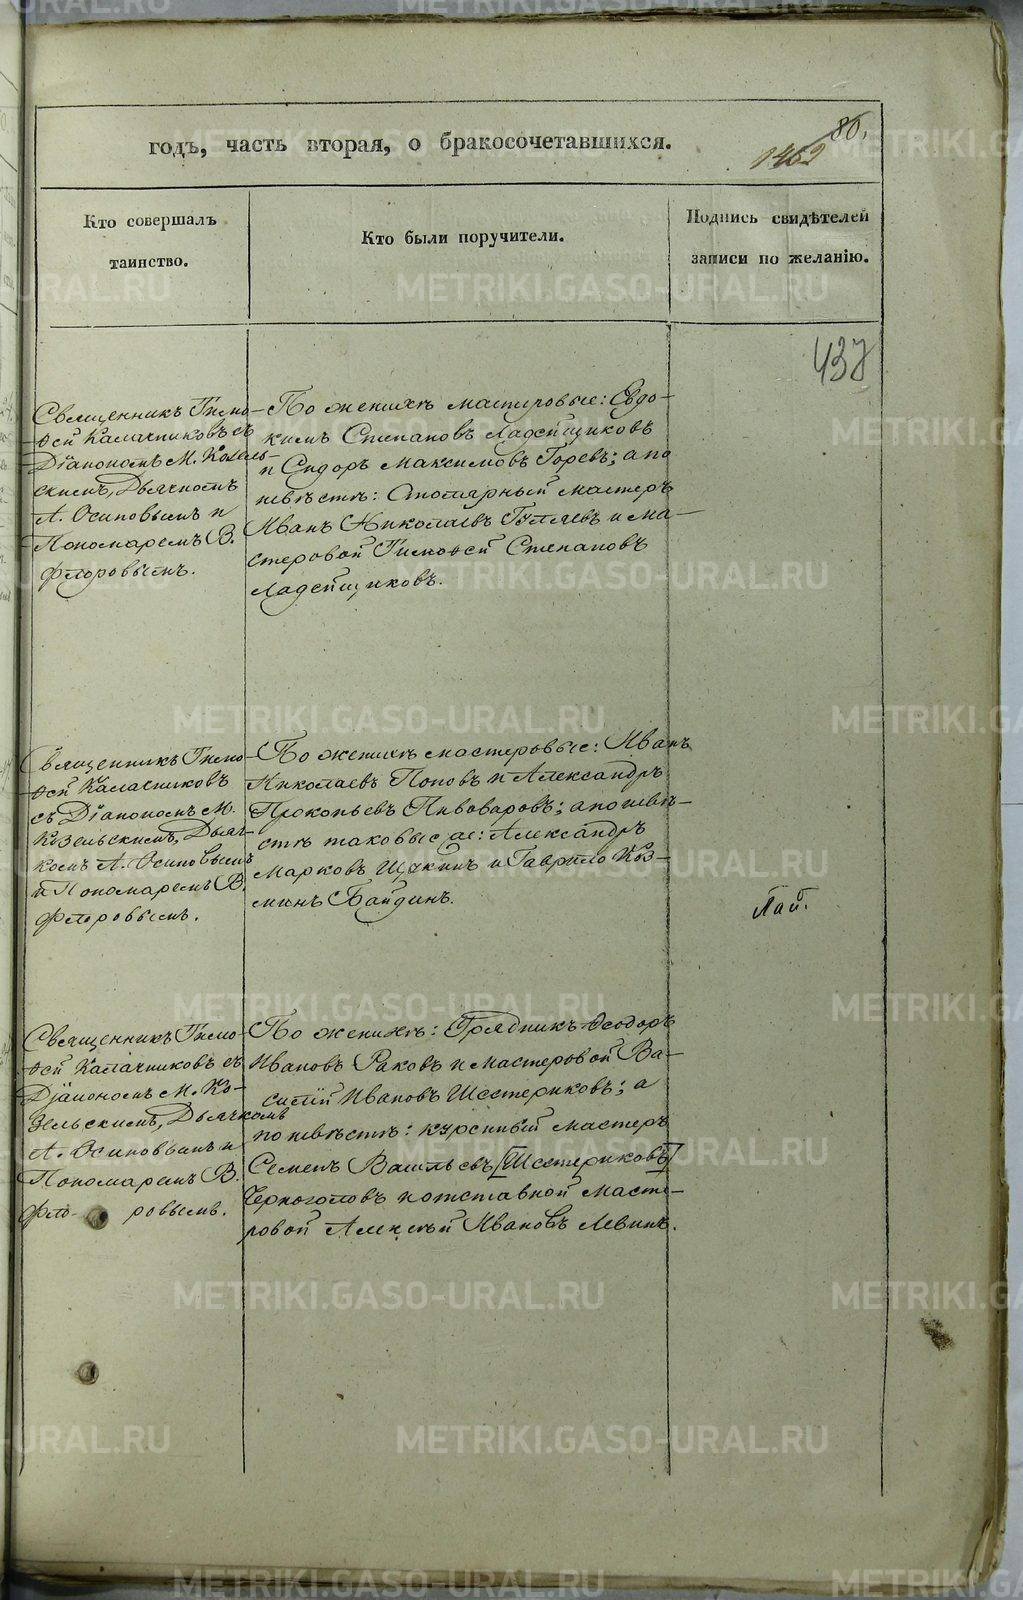 годъ, часть вторая, о бракосочетавшихся.
80.
1462
Кто совершалъ
таинство.
Кто были поручители.
Подпись свидѣтелей
записи по желанію.
437
Священникъ Тимо-
ѳей Калачниковъ съ
Діакономъ М. Козель-
скимъ, Дьячкомъ
А. Осиповымъ и
Пономаремъ В.
Флоровымъ.
По женихѣ мастеровые: Евдо-
кимъ Степановъ Ладейщиковъ
и Сидоръ Максимовъ Горевъ; а по
невѣстѣ: Столярный мастеръ
Иванъ Николаевъ Гуляевъ и ма-
стеровой Тимоѳей Степановъ
Ладейщиковъ.
Священникъ Тимо-
ѳей Калачниковъ
съ Діакономъ М.
Козельскимъ, Дьяч-
комъ А. Осиповымъ
и Пономаремъ В.
Флоровымъ.
По женихѣ мастеровые: Иванъ
Николаевъ Поповъ и Александръ
Прокопьевъ Пивоваровъ; а по невѣ-
стѣ таковые же: Александръ
Марковъ Щукинъ и Гаврило Коз-
минъ Байдинъ.
Лай.
Священникъ Тимо-
ѳей Калачниковъ съ
Діакономъ М. Ко-
зельскимъ, Дьячкомъ
А. Осиповымъ и
Пономаремъ В.
Фло- ровымъ.
По женихѣ: Ѳеодоръ
Ивановъ Раковъ и мастеровой Ва-
силій Ивановъ Шестериковъ; а
по невѣстѣ: мастеръ
Семенъ Васильевъ [Шестериковъ]
Черноголовъ и отставной масте-
ровой Алексѣй Ивановъ Левинъ.
METRIKI.GASO-URAL.RU